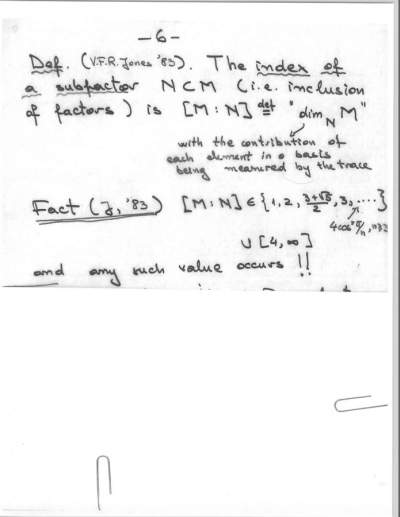 -6-
Def. (V.F.R. Jones '83). The index of
a subfactor N ⊂ M (i.e. inclusion
of factors) is [M:N] def= "dim_N M"
with the contribution of
each element in a basis
being measured by the trace
Fact (J, '83) [M:N] ∈ {1, 2, (3+√5)/2, 3, ....}
4cos² π/n, n≥3
∪ [4, ∞]
and any such value occurs !!